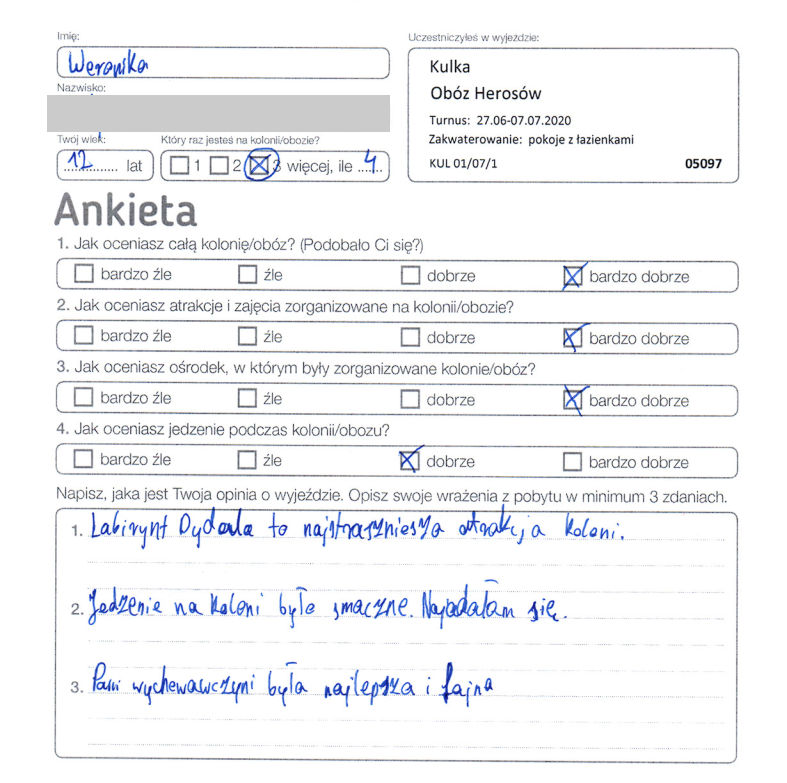 Imię:
Weronika
Nazwisko:
Twój wiek:
Który raz jesteś na kolonii/obozie?
12 lat
1 2 3 więcej, ile 4
Uczestniczyłeś w wyjeździe:
Kulka
Obóz Herosów
Turnus: 27.06-07.07.2020
Zakwaterowanie: pokoje z łazienkami
KUL 01/07/1 05097
Ankieta
1. Jak oceniasz całą kolonię/obóz? (Podobało Ci się?)
bardzo źle źle dobrze bardzo dobrze
2. Jak oceniasz atrakcje i zajęcia zorganizowane na kolonii/obozie?
bardzo źle źle dobrze bardzo dobrze
3. Jak oceniasz ośrodek, w którym były zorganizowane kolonie/obóz?
bardzo źle źle dobrze bardzo dobrze
4. Jak oceniasz jedzenie podczas kolonii/obozu?
bardzo źle źle dobrze bardzo dobrze
Napisz, jaka jest Twoja opinia o wyjeździe. Opisz swoje wrażenia z pobytu w minimum 3 zdaniach.
1. Labirynt Dydala to najstraszniesza atrakcja koloni.
2. Jedzenie na koloni było smaczne. Najadałam się.
3. Pani wychewawczyni była najlepsza i fajna